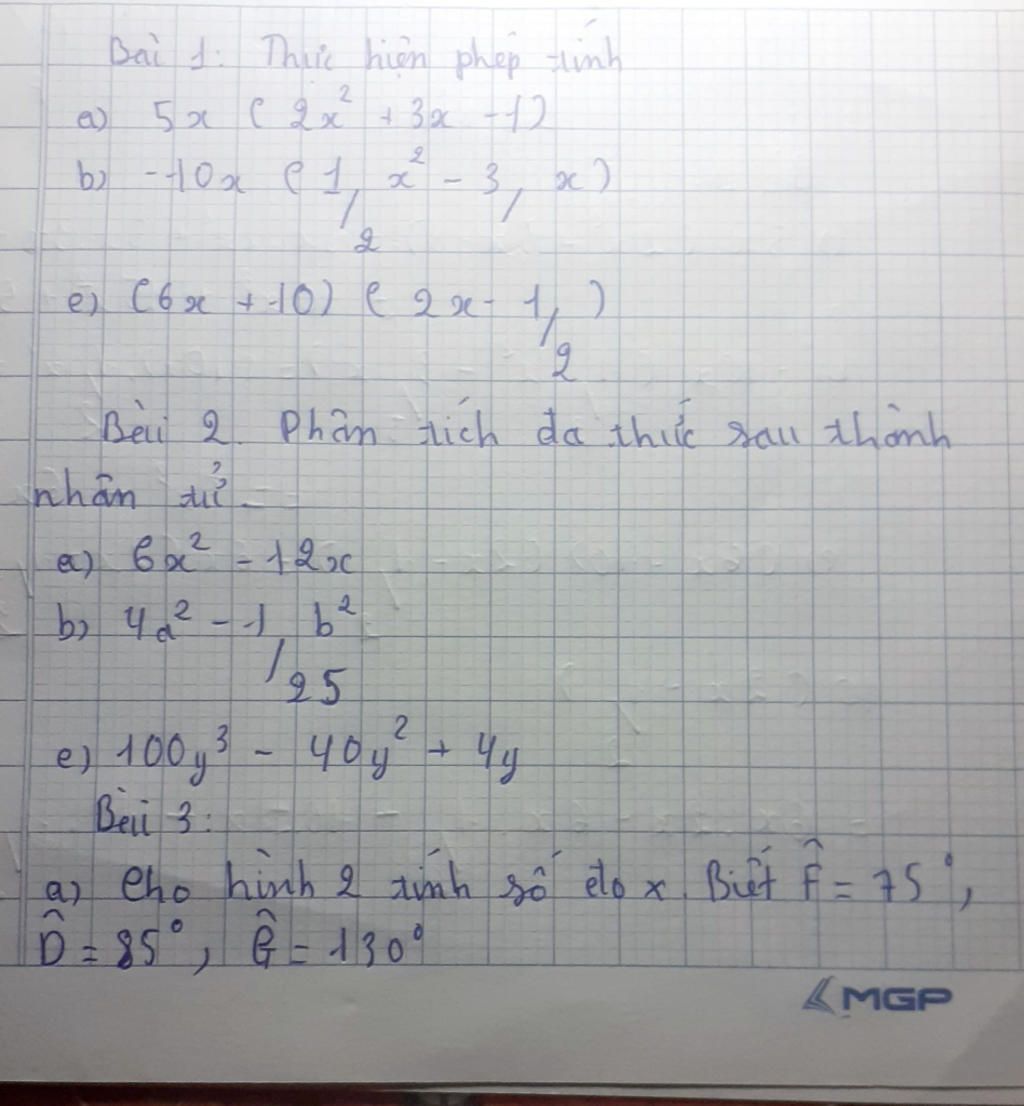 Bài 1: Thực hiện phép tính
a) 5x ( 2x² + 3x - 1)
b) -10x ( 1/2 x² - 3, x)
c) (6x + 10) ( 2x - 1/2 )
Bài 2. Phân tích đa thức sau thành
nhân tử
a) 6x² - 12x
b) 4a² - 1/25 b²
c) 100y³ - 40y² + 4y
Bài 3:
a) Cho hình 2 tính số đo x. Biết F̂ = 75°,
D̂ = 85°, Ĝ = 130°
MGP